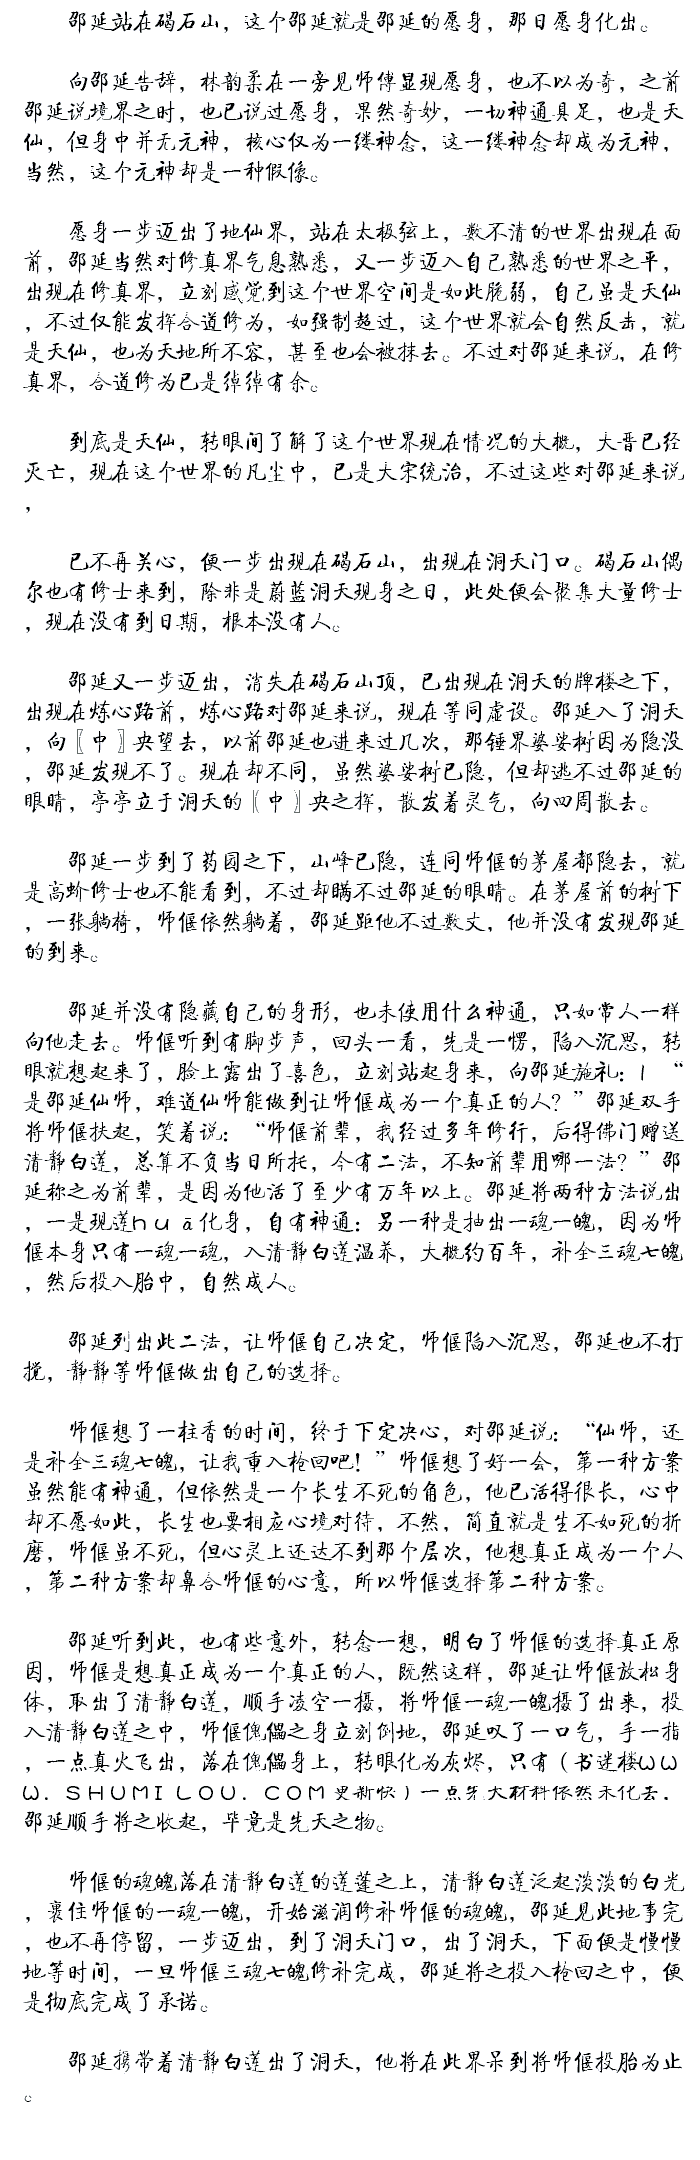 邵延站在碣石山，这个邵延就是邵延的愿身，那日愿身化出。
向邵延告辞，林韵柔在一旁见师傅显现愿身，也不以为奇，之前
邵延说境界之时，也已说过愿身，果然奇妙，一切神通具足，也是天
仙，但身中并无元神，核心仅为一缕神念，这一缕神念却成为元神，
当然，这个元神却是一种假像。
愿身一步迈出了地仙界，站在太极弦上，数不清的世界出现在面
前，邵延当然对修真界气息熟悉，又一步迈入自己熟悉的世界之平，
出现在修真界，立刻感觉到这个世界空间是如此脆弱，自己虽是天仙
，不过仅能发挥合道修为，如强制超过，这个世界就会自然反击，就
是天仙，也为天地所不容，甚至也会被抹去。不过对邵延来说，在修
真界，合道修为已是绰绰有余。
到底是天仙，转眼间了解了这个世界现在情况的大概，大晋已经
灭亡，现在这个世界的凡尘中，已是大宋统治，不过这些对邵延来说
，
已不再关心，便一步出现在碣石山，出现在洞天门口。碣石山偶
尔也有修士来到，除非是蔚蓝洞天现身之日，此处便会聚集大量修士
，现在没有到日期，根本没有人。
邵延又一步迈出，消失在碣石山顶，已出现在洞天的牌楼之下，
出现在炼心路前，炼心路对邵延来说，现在等同虚设。邵延入了洞天
，向〖中〗央望去，以前邵延也进来过几次，那锤界婆娑树因为隐没
，邵延发现不了。现在却不同，虽然婆娑树已隐，但却逃不过邵延的
眼睛，亭亭立于洞天的〖中〗央之挥，散发着灵气，向四周散去。
邵延一步到了药园之下，山峰已隐，连同师偃的茅屋都隐去，就
是高蚧修士也不能看到，不过却瞒不过邵延的眼睛。在茅屋前的树下
，一张躺椅，师偃依然躺着，邵延距他不过数丈，他并没有发现邵延
的到来。
邵延并没有隐藏自己的身形，也未使用什么神通，只如常人一样
向他走去。师偃听到有脚步声，回头一看，先是一愣，陷入沉思，转
眼就想起来了，脸上露出了喜色，立刻站起身来，向邵延施礼：l “
是邵延仙师，难道仙师能做到让师偃成为一个真正的人？”邵延双手
将师偃扶起，笑着说：“师偃前辈，我经过多年修行，后得佛门赠送
清静白莲，总算不负当日所托，今有二法，不知前辈用哪一法？”邵
延称之为前辈，是因为他活了至少有万年以上。邵延将两种方法说出
，一是现莲huā化身，自有神通：另一种是抽出一魂一魄，因为师
偃本身只有一魂一魂，入清静白莲温养，大概约百年，补全三魂七魄
，然后投入胎中，自然成人。
邵延列出此二法，让师偃自己决定，师偃陷入沉思，邵延也不打
搅，静静等师偃做出自己的选择。
师偃想了一柱香的时间，终于下定决心，对邵延说：“仙师，还
是补全三魂七魄，让我重入枪回吧！”师偃想了好一会，第一种方案
虽然能有神通，但依然是一个长生不死的角色，他已活得很长，心中
却不愿如此，长生也要相应心境对待，不然，简直就是生不如死的折
磨，师偃虽不死，但心灵上还达不到那个层次，他想真正成为一个人
，第二种方案却鼻合师偃的心意，所以师偃选择第二种方案。
邵延听到此，也有些意外，转念一想，明白了师偃的选择真正原
因，师偃是想真正成为一个真正的人，既然这样，邵延让师偃放松身
体，取出了清静白莲，顺手凌空一摄，将师偃一魂一魄摄了出来，投
入清静白莲之中，师偃傀儡之身立刻倒地，邵延叹了一口气，手一指
，一点真火飞出，落在傀儡身上，转眼化为灰烬，只有（书迷楼WW
W．SHUMILOU．COM更新快）一点先天材料依然未化去，
邵延顺手将之收起，毕竟是先天之物。
师偃的魂魄落在清静白莲的莲蓬之上，清静白莲泛起淡淡的白光
，裹住师偃的一魂一魄，开始滋润修补师偃的魂魄，邵延见此地事完
，也不再停留，一步迈出，到了洞天门口，出了洞天，下面便是慢慢
地等时间，一旦师偃三魂七魄修补完成，邵延将之投入枪回之中，便
是彻底完成了承诺。
邵延携带着清静白莲出了洞天，他将在此界呆到将师偃投胎为止
。